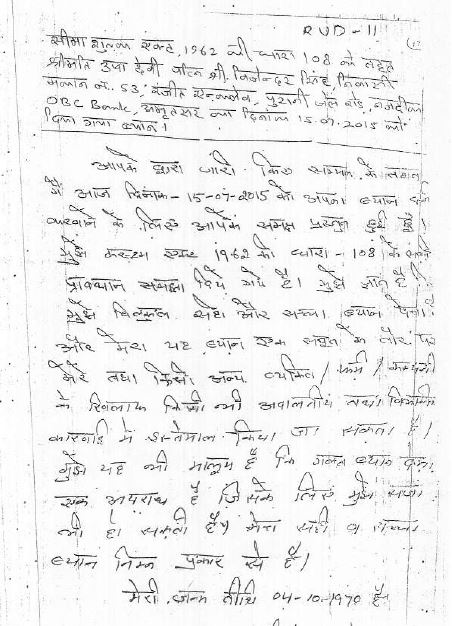 RUD-11
सीमा शुल्क एक्ट, 1962 की धारा 108 के तहत
श्रीमति उषा देवी पत्नि श्री. विजेन्दर सिंह, निवासी
मकान नं. 53, रंजीत एन्कलेव, पुरानी जेल रोड, नजदीक
OBC Bank, अमृतसर का दिनांक 15.07.2015 को
दिया गया ब्यान।
आपके द्वारा जारी किए सम्मन के सम्बन्ध
में आज दिनांक-15-07-2015 को अपना ब्यान दर्ज
करवाने के लिए आपके समक्ष प्रस्तुत हुई हूँ।
मुझे कस्टम एक्ट 1962 की धारा-108 के सभी
प्रावधान समझा दिये गये है। मुझे ज्ञात है कि
मुझे बिल्कुल सही और सच्चा ब्यान देना है
और मेरा यह ब्यान एक सबूत के तौर पर
मेरे तथा किसी अन्य व्यक्ति/फर्म/कम्पनी
के खिलाफ किसी भी अदालतीय तथा विभागीय
कारवाई में इस्तेमाल किया जा सकता है।
मुझे यह भी मालूम है कि गलत ब्यान देना
एक अपराध है जिसके लिए मुझे सजा
भी हो सकती है। मेरा सही व सच्चा
ब्यान निम्न प्रकार से है।
मेरी जन्म तीथि 04-10-1970 है